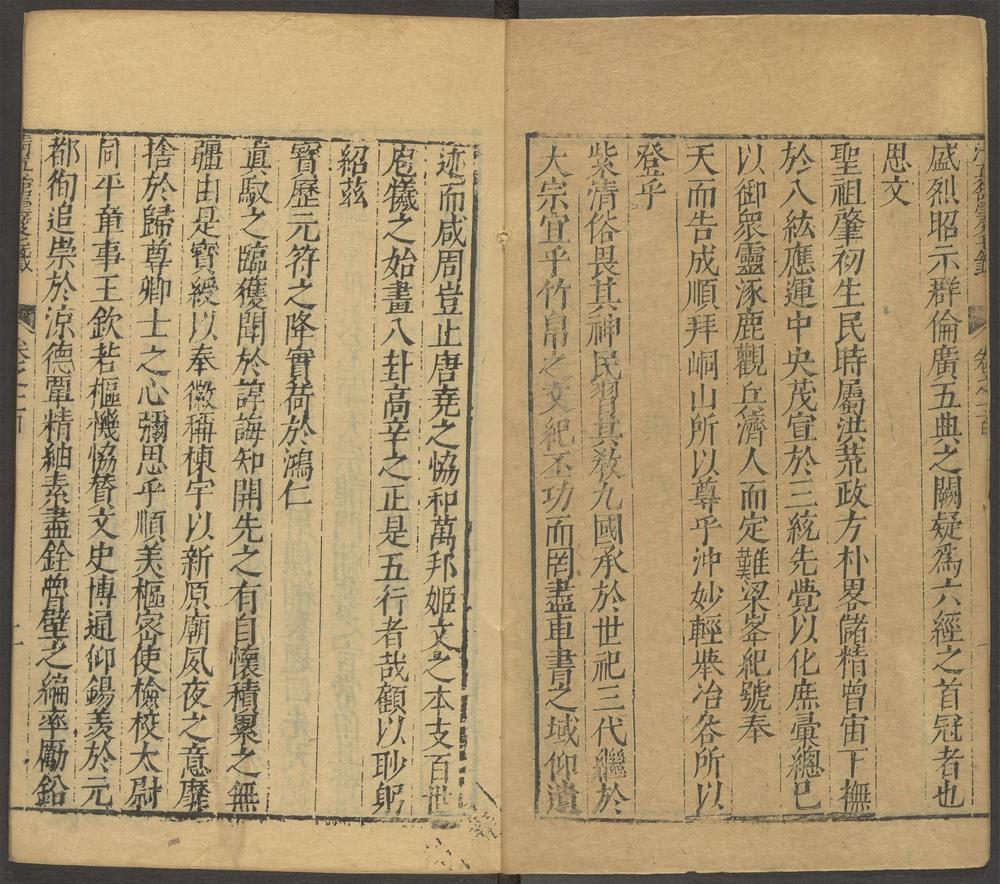 盛烈昭示群倫廣五典之闕疑爲六經之首冠者也
思文
聖祖肇初生民時屬洪荒政方朴畧儲精曾宙下撫
於八紘應運中央茂宣於三統先覺以化庶彙總已
以御衆靈涿鹿觀兵濟人而定難梁峯紀號奉
天而告成順拜峒山所以尊乎沖妙輕舉冶谷所以
登乎
紫清俗畏其神民習其敎九國承於世祀三代繼於
大宗宜乎竹帛之文紀丕功而罔盡車書之域仰遺
迹而咸周豈止唐堯之恊和萬邦姬文之本支百世
庖犧之始畫八卦高辛之正是五行者哉顧以眇躬
紹茲
寳歷元符之降實荷於鴻仁
眞馭之臨獲聞於諄誨知開先之有自懷積累之無
疆由是寳綬以奉徽稱棟宇以新原廟夙夜之意靡
捨於歸尊卿士之心彌思乎順美樞宻使檢校太尉
同平章事王欽若樞機恊賛文史博通仰錫羡於元
都徇追崇於涼德覃精紬素盡銓曾壁之編率勵鉛